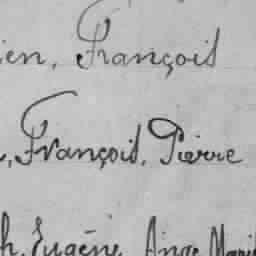 ien, François
, François, Pierre
h, Eugène, Ange, Mari